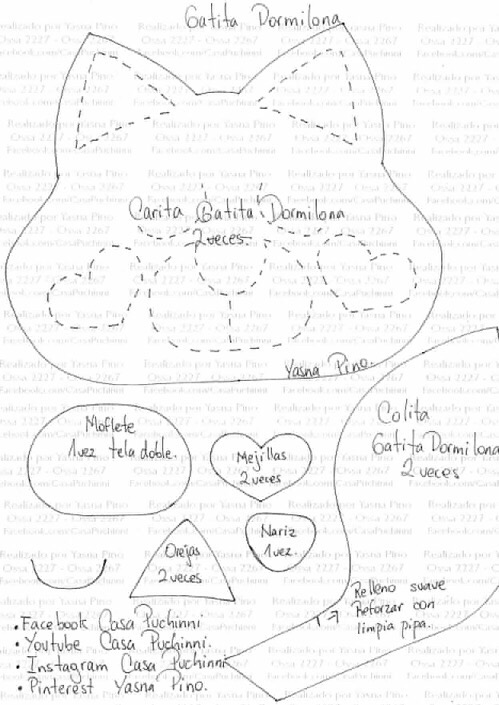 Gatita Dormilona
Carita Gatita Dormilona
2 veces.
Yasna Pino.
Moflete
1 vez tela doble.
Mejillas
2 veces
Colita
Gatita Dormilona
2 veces
Orejas
2 veces
Nariz
1 vez.
Relleno suave
Reforzar con
limpia pipa..
• Facebook Casa Puchinni
• Youtube Casa Puchinni.
• Instagram Casa Puchinni
• Pinterest Yasna Pino.
Realizado por Yasna Pino
Ossa 2227 - Ossa 2267
Facebook.com/CasaPuchinni